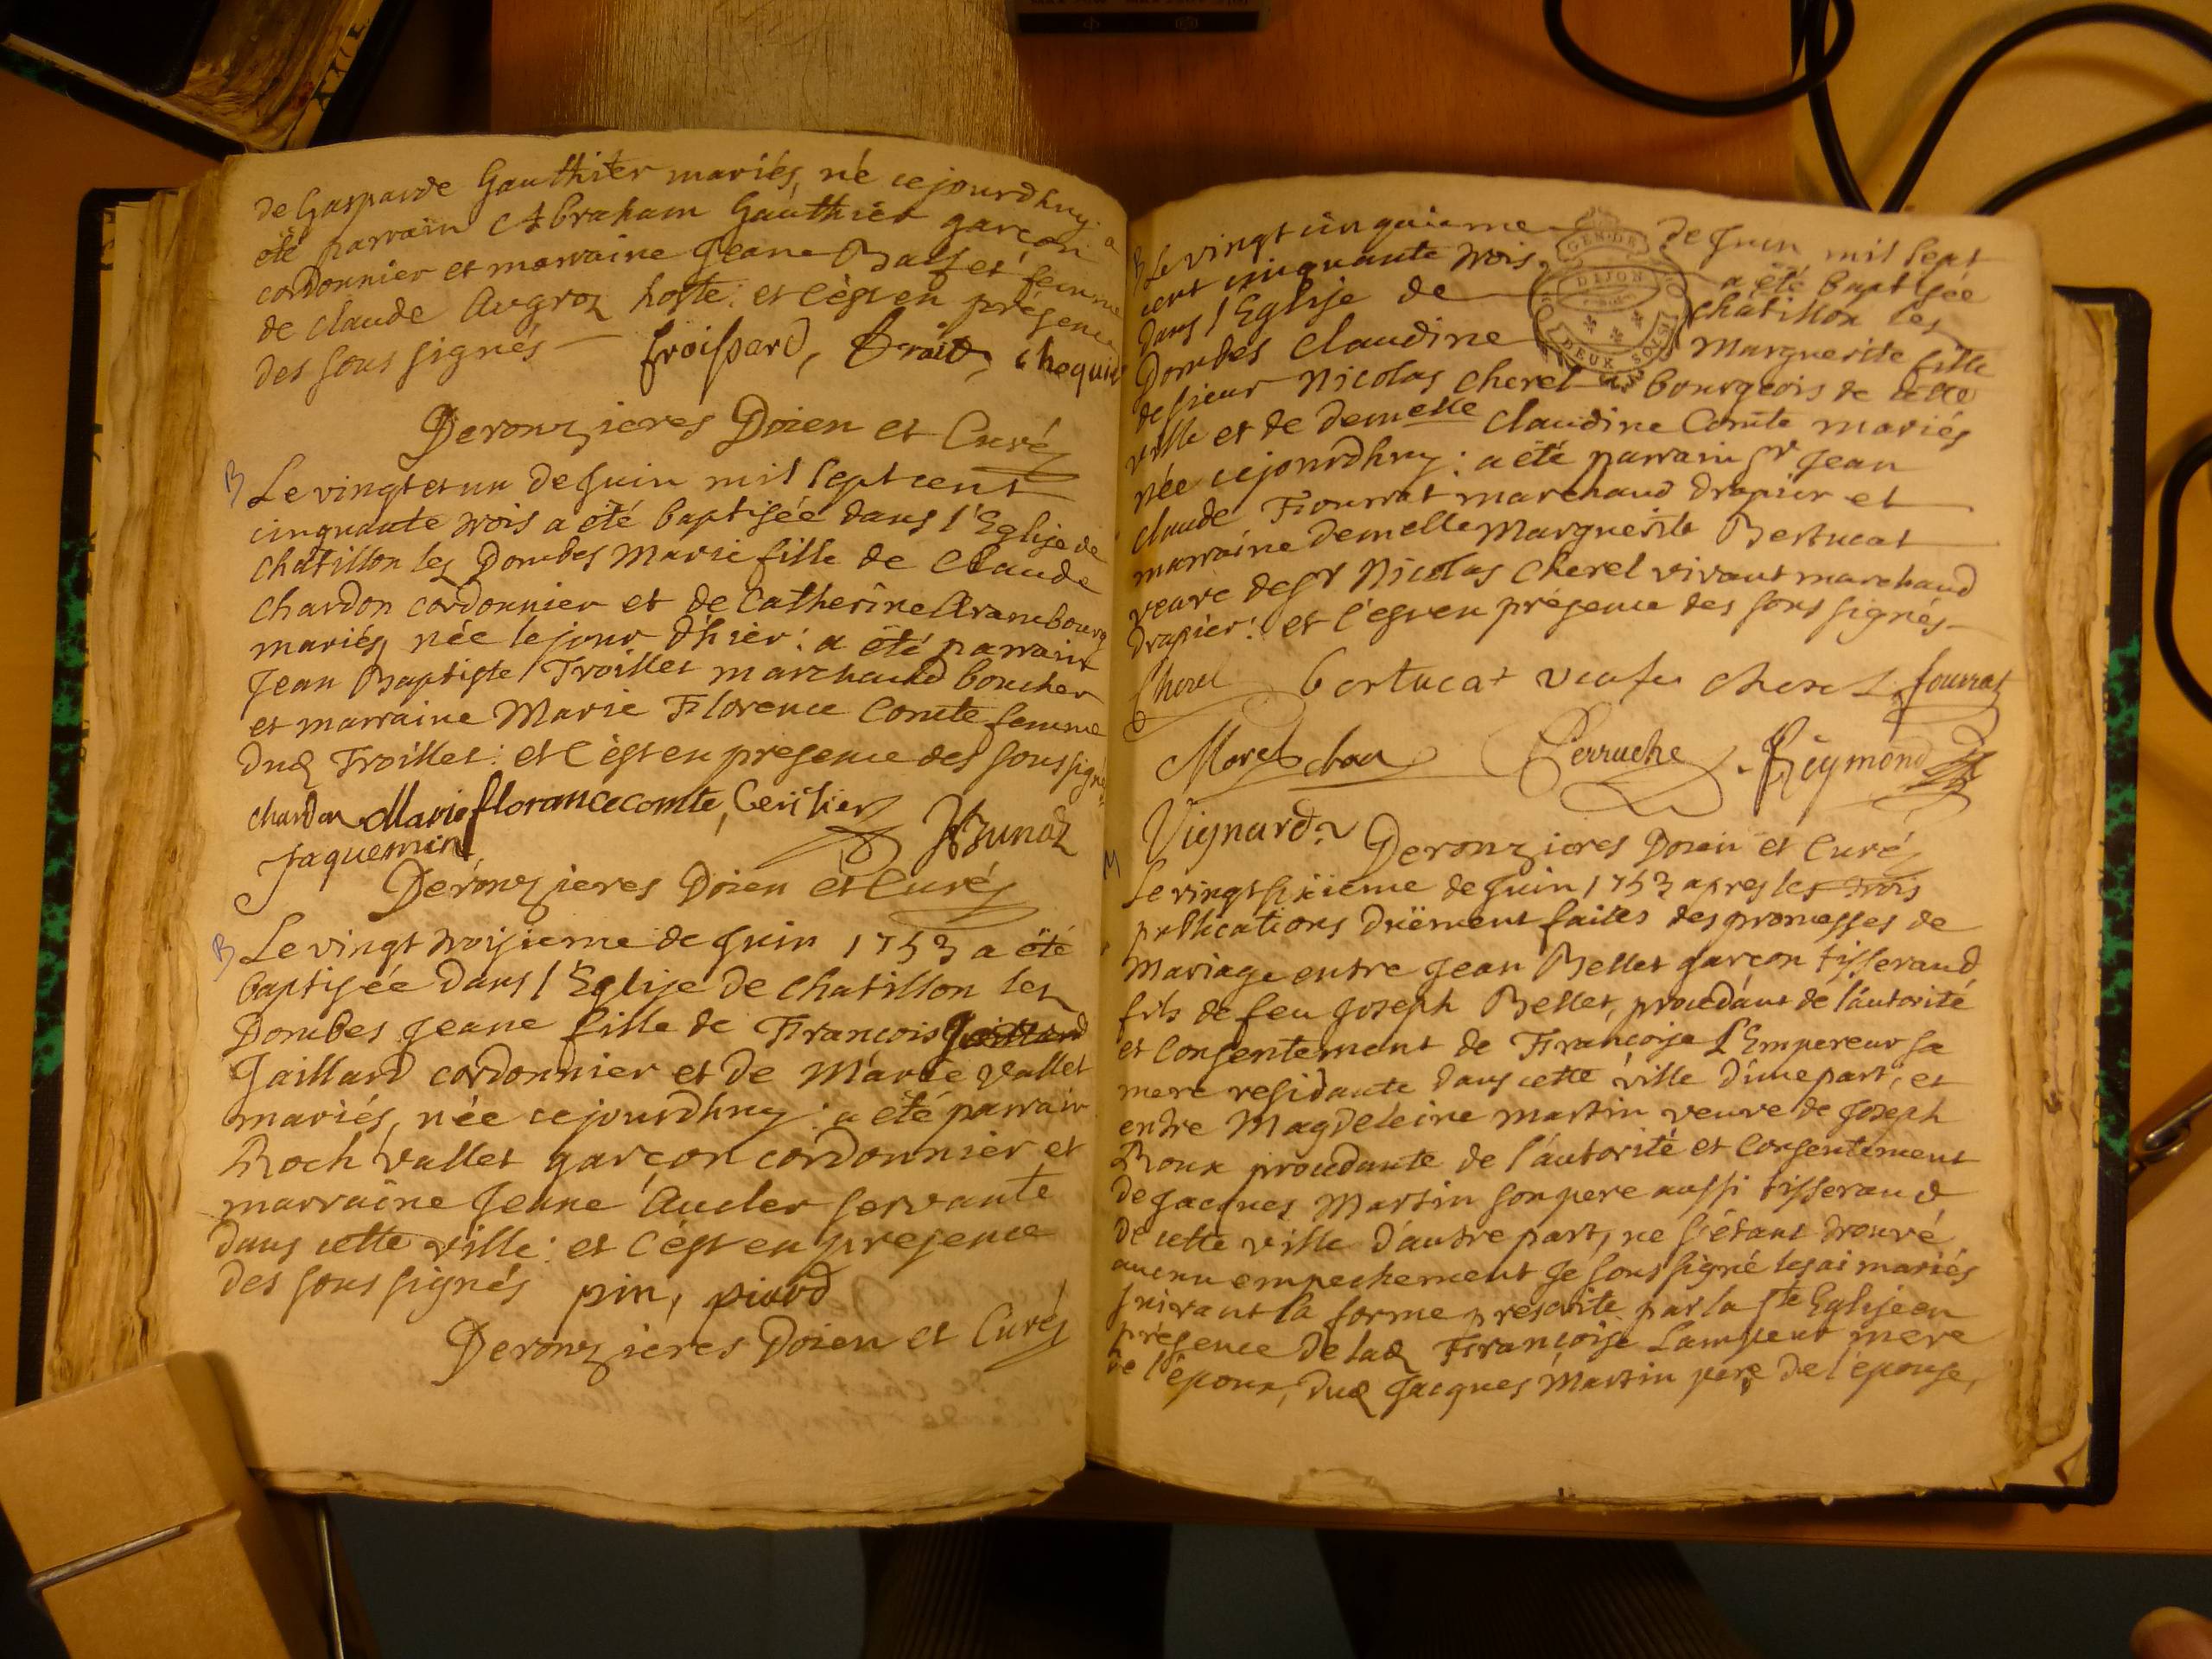 de Gasparde Gauthier mariés, né cejourdhuy: a
été parrain Abraham Gauthier garçon
cordonnier et marraine Jeane femme
de claude Augros hoste: et c'est en présence
des sous signés froissard, chequin
Deronzieres Doien et Curé
B
Le vingt et un de Juin mil sept cent
cinquante trois a été baptisée dans l'Eglise de
chatillon les Dombes Marie fille de Claude
chardon cordonnier et de Catherine Arambourg
mariés, née le jour d'hier: a été parrain
Jean Baptiste Troillet marchand boucher
et marraine Marie Florence Comte femme
dud Troillet: et c'est en presence des sous signés
chardon Marie florance comte, Cerisier Brunod
Jaquemin
Deronzieres Doien et Curé
B
Le vingt troisieme de Juin 1753 a été
baptisée dans l'Eglise de chatillon les
Dombes Jeane fille de Francois
Jaillard cordonnier et de Marie Vallet
mariés, née cejourdhuy: a été parrain
Roch Vallet garçon cordonnier et
marraine Jeane Aucler servante
dans cette ville: et c'est en presence
des sous signés pin, piard
Deronzieres Doien et Curé
B
Le vingt cinquieme de Juin mil sept
cent cinquante trois a été baptisée
dans l'Eglise de chatillon les
Dombes Claudine Marguerite fille
de sieur Nicolas cherel bourgeois de cette
ville et de demelle Claudine Comte mariés
née cejourdhuy: a été parrain sr Jean
claude Fourrat marchand drapier et
marraine demelle Marguerite Bertucat
veuve de sr Nicolas Cherel vivant marchand
drapier: et c'est en présence des sous signés
GEN. DE
DIJON
DEUX SOLS
Cherel bertucat veufe cherel fourrat
Morel Perruche Reymond
Vignard
Deronzieres Doien et Curé
M
Le vingt sixieme de Juin 1753 apres les trois
publications düement faites des promesses de
mariage entre Jean Bellet garçon tisserand
fils de feu Joseph Bellet, procedant de l'autorité
et Consentement de Françoise L'Empereur sa
mere residante dans cette ville d'une part, et
entre Magdeleine Martin veuve de Joseph
Roux procedante de l'autorité et Consentement
de Jacques Martin son pere aussi tisserand
de cette ville d'autre part, ne s'étant trouvé
aucun empechement Je sous signé les ai mariés
suivant la forme prescrite par la ste Eglise en
présence de lad Françoise Lampeur mere
de l'époux, dud Jacques Martin pere de l'épouse,